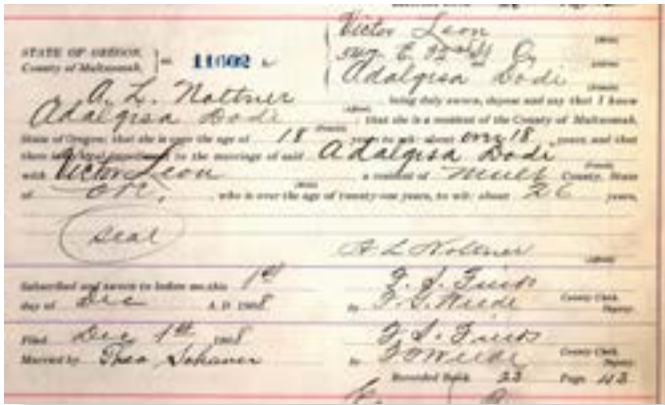 Victor Leon
STATE OF OREGON,
County of Multnomah, ss. 11602
Adalgisa Dodi
A. L. Nottner being duly sworn, depose and say that I know
Adalgisa Dodi that she is a resident of the County of Multnomah,
State of Oregon; that she is over the age of 18 years to wit: about over 18 years, and that
there is legal to the marriage of said Adalgisa Dodi
with Victor Leon a resident of Mult County, State
of OR, who is over the age of twenty-one years, to wit: about 26 years,
Seal
A L Nottner
Subscribed and sworn to before me this 1st
day of Dec A. D. 1908
F. S. Fields County Clerk
by Deputy
Filed Dec 1st 1908 F. S. Fields County Clerk
Married by Theo by Deputy
Recorded Book 23 Page 43